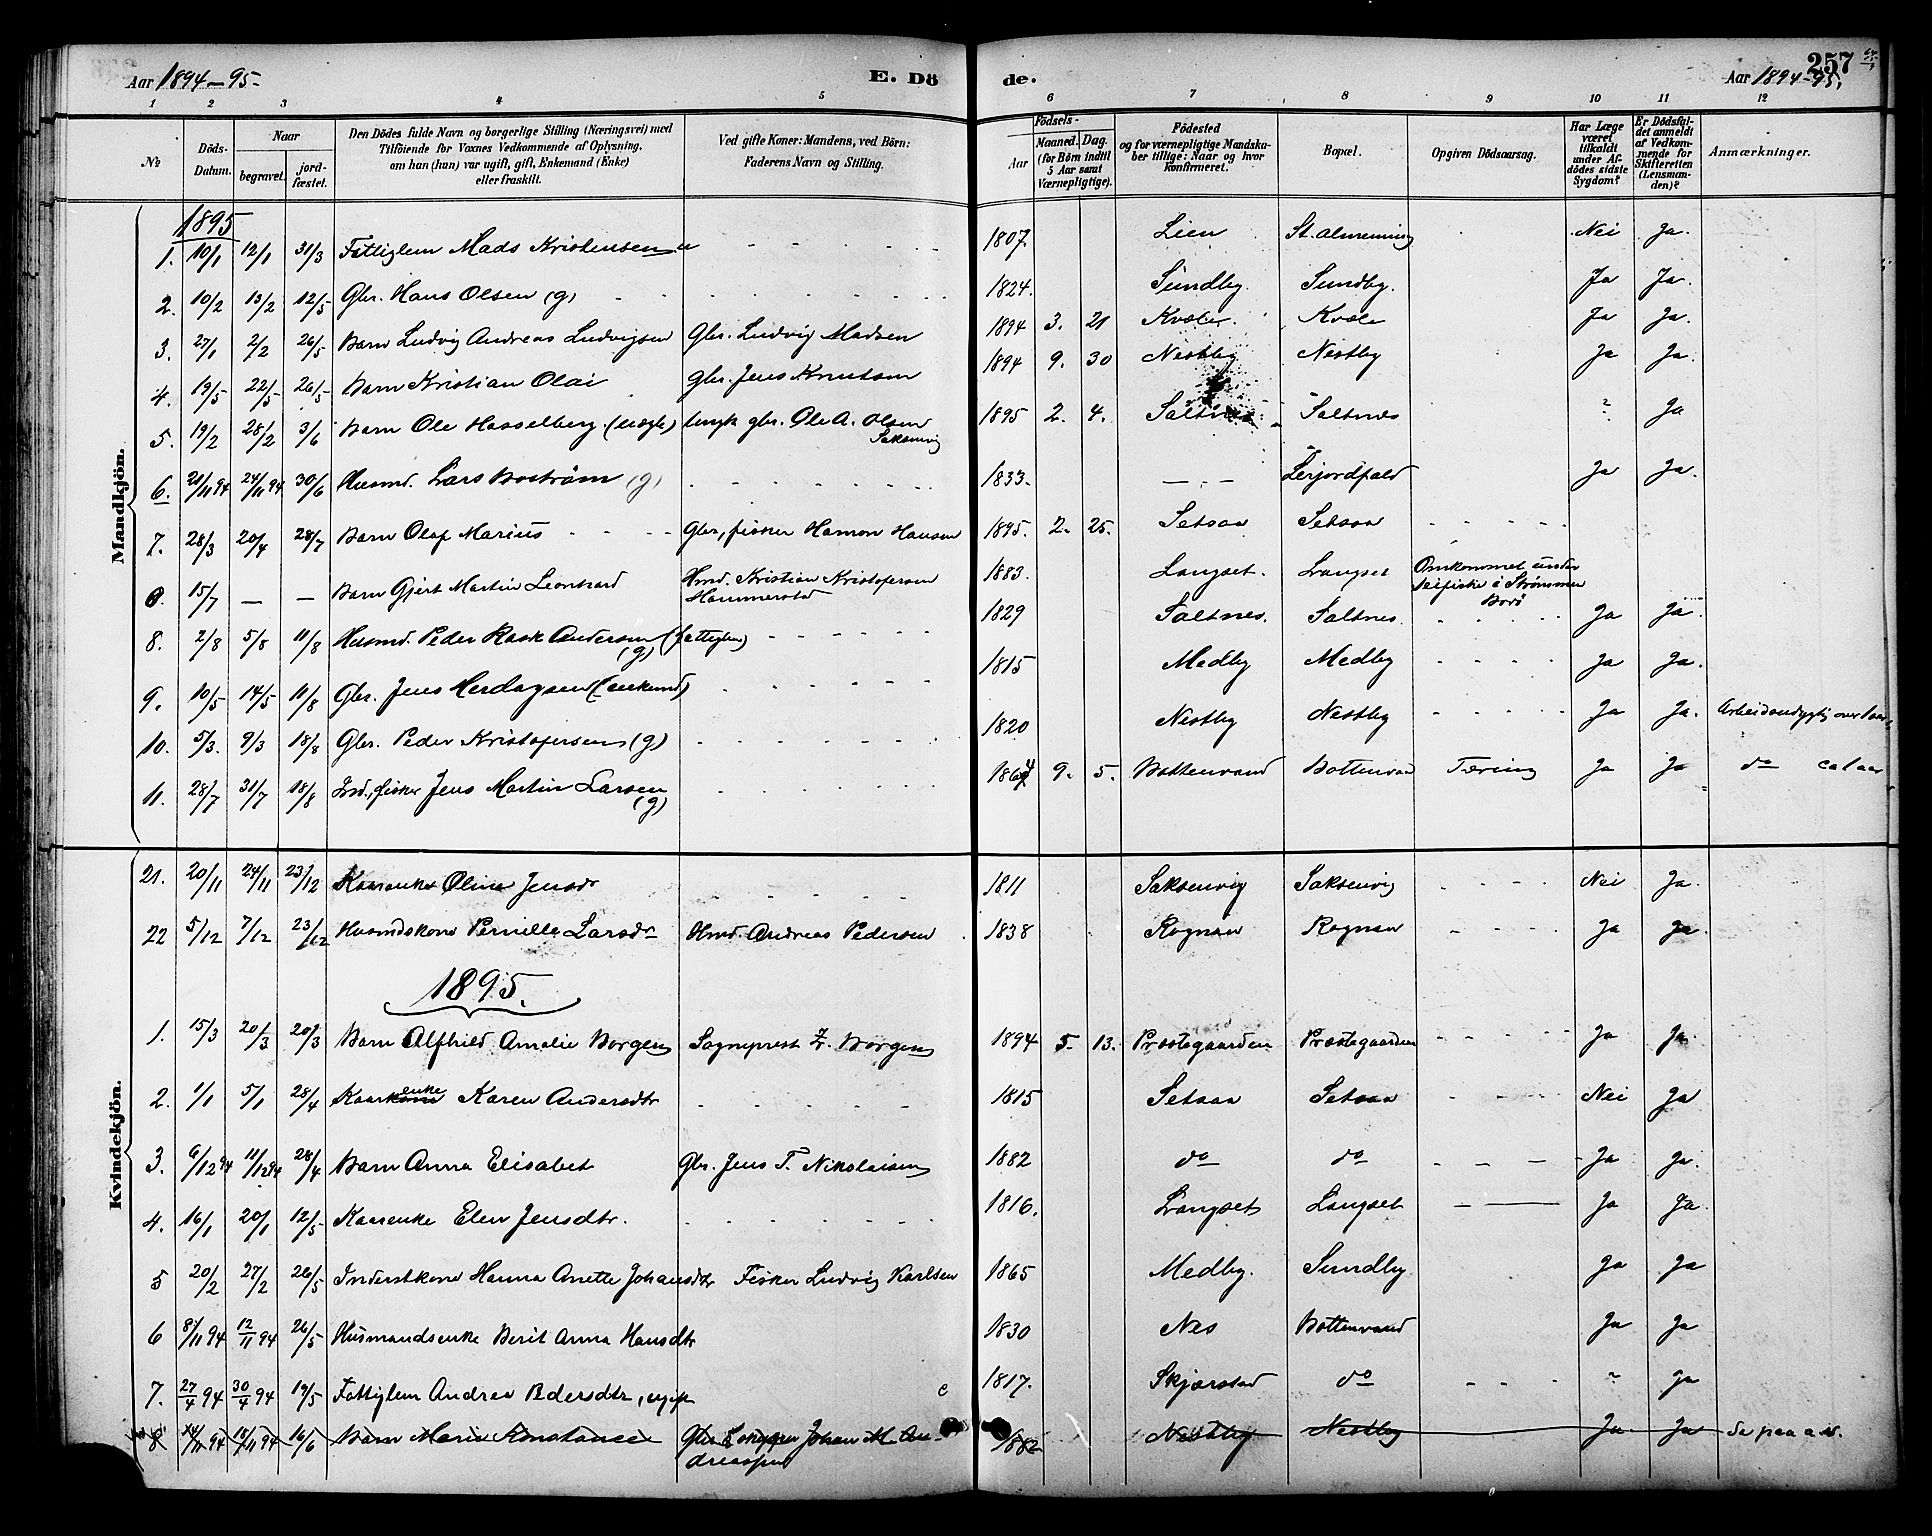 Aar 1894-95- E. Dö de. Aar 1894-95. 257
1 2 3 4 5 6 7 8 9 10 11 12
No Döds-Datum. Naar begravet. jord-fæstet. Den Dödes fulde Navn og borgerlige Stilling (Næringsvei) med Tilföiende for Voxnes Vedkommende af Oplysning, om han (hun) var ugift, gift, Enkemand (Enke) eller fraskilt. Ved gifte Koner: Mandens, ved Börn: Faderens Navn og Stilling. Födsels- Aar Maaned. Dag. (for Børn indtil 5 Aar samt Værnepligtige). Födested og for værnepligtige Mandskaber tillige: Naar og hvor konfirmeret. Bopæl. Opgiven Dödsaarsag. Har Læge været tilkaldt under Afdödes sidste Sygdom? Er Dödsfaldet anmeldt af Vedkommende for Skifteretten (Lensmanden)? Anmærkninger.
Mandkjön.
1895
1. 10/1 12/1 31/3 Fattiglem Mads Kristensen u - - - 1807. Lien St. almenning Nei Ja.
2. 10/2 13/2 12/5 Gbr. Hans Olsen (g) - - - 1824. Sundby. Sundby. Ja Ja.
3. 27/1 2/2 26/5 Barn Ludvig Andreas Ludvigsen Gbr. Ludvig Madsen 1894 3. 21 Kvæle. Kvæle Ja Ja.
4. 19/5 22/5 26/5 Barn Kristian Olai Gbr. Jens Knutsen 1894 9. 30 Nestby Nestby Ja Ja.
5. 19/2 28/2 3/6 Barn Ole Hasselberg (uægte) Ungk gbr. Ole A. Olsen Saksenvig 1895 2. 4. Saltnes Saltnes ? Ja
6. 21/11 94 24/11 94 30/6 Husmd. Lars Boström (g) - - - 1833. - - - Leirjordfald Ja Ja.
7. 28/3 20/4 28/7 Barn Olaf Marius - - - Gbr, fisker Hamon Hansen 1895. 2. 25. Setsaa Setsaa - - -
0. 15/7 — — Barn Gjert Martin Leonhard Hmd. Kristian Kristofersen Hammerstad 1883. Langset. Langset Omkommet under seifiske i Strømmen Bodø
8. 2/8 5/8 11/8 Husmd. Peder Rask Andersen (fattiglem) (g) - - - 1829 Saltnes. Saltnes. - - - Ja Ja.
9. 10/5 14/5 11/8 Gbr. Jens Herdagsen (enkemd) - - - 1815 Medby Medby - - - Ja Ja.
10. 5/3. 9/3 18/8 Gbr. Peder Kristofersen (g) - - - 1820 Nestby Nestby - - - Ja Ja. Arbeidsudygtig over 1 aar
11. 28/7 31/7 18/8 Ind., fisker Jens Martin Larsen (g) - - - 1864 9. 5. Bottenvand Bottenvand Tæring Ja Ja do ca 1 aar
Kvindekjön.
21. 20/11 24/11 23/12 Kaarenke Oline Jensdr - - - 1811 Saksenvig Saksenvig - - - Nei Ja.
22 5/12 7/12 23/12 Husmdskone Pernille Larsdr Hmd. Andreas Pedersen 1838 Rognan Rognan - - - Ja Ja.
1895.
1. 15/3 20/3 20/3 Barn Alfhild Amalie Borgen Sogneprest Fr. Borgen 1894 5. 13. Præstegaarden Præstegaarden - - - Ja Ja.
2. 1/1 5/1 28/4 Kaarenke Karen Andersdtr - - - 1815 Setsaa Setsaa - - - Nei Ja
3. 6/12 94 11/12 94 28/4 Barn Anna Elisabet Gbr. Jens T. Nikolaisen 1882 do do - - - Ja Ja.
4. 16/1 20/1 12/5 Kaarenke Elen Jensdtr. - - - 1816. Langset Langset - — Ja Ja.
5 20/2 27/2 26/5 Inderstkone Hanna Anette Johansdtr Fisker Ludvig Karlsen 1865 Medby. Sundby Ja Ja
6 8/11 94 12/11 94 26/5 Husmandsenke Berit Anna Hansdtr 1830 Nes Bottenvand Ja Ja
7. 27/4 94 30/4 94 19/5 Fattiglem Andrea Pedersdtr, ugift 1817. Skjærstad do - - - ? Ja
8 14/11 94 18/11 94 16/6 Barn Marie Konstance Gbr. Johan M. Andreassen 1882 Nestby Nestby Ja Ja Se paa